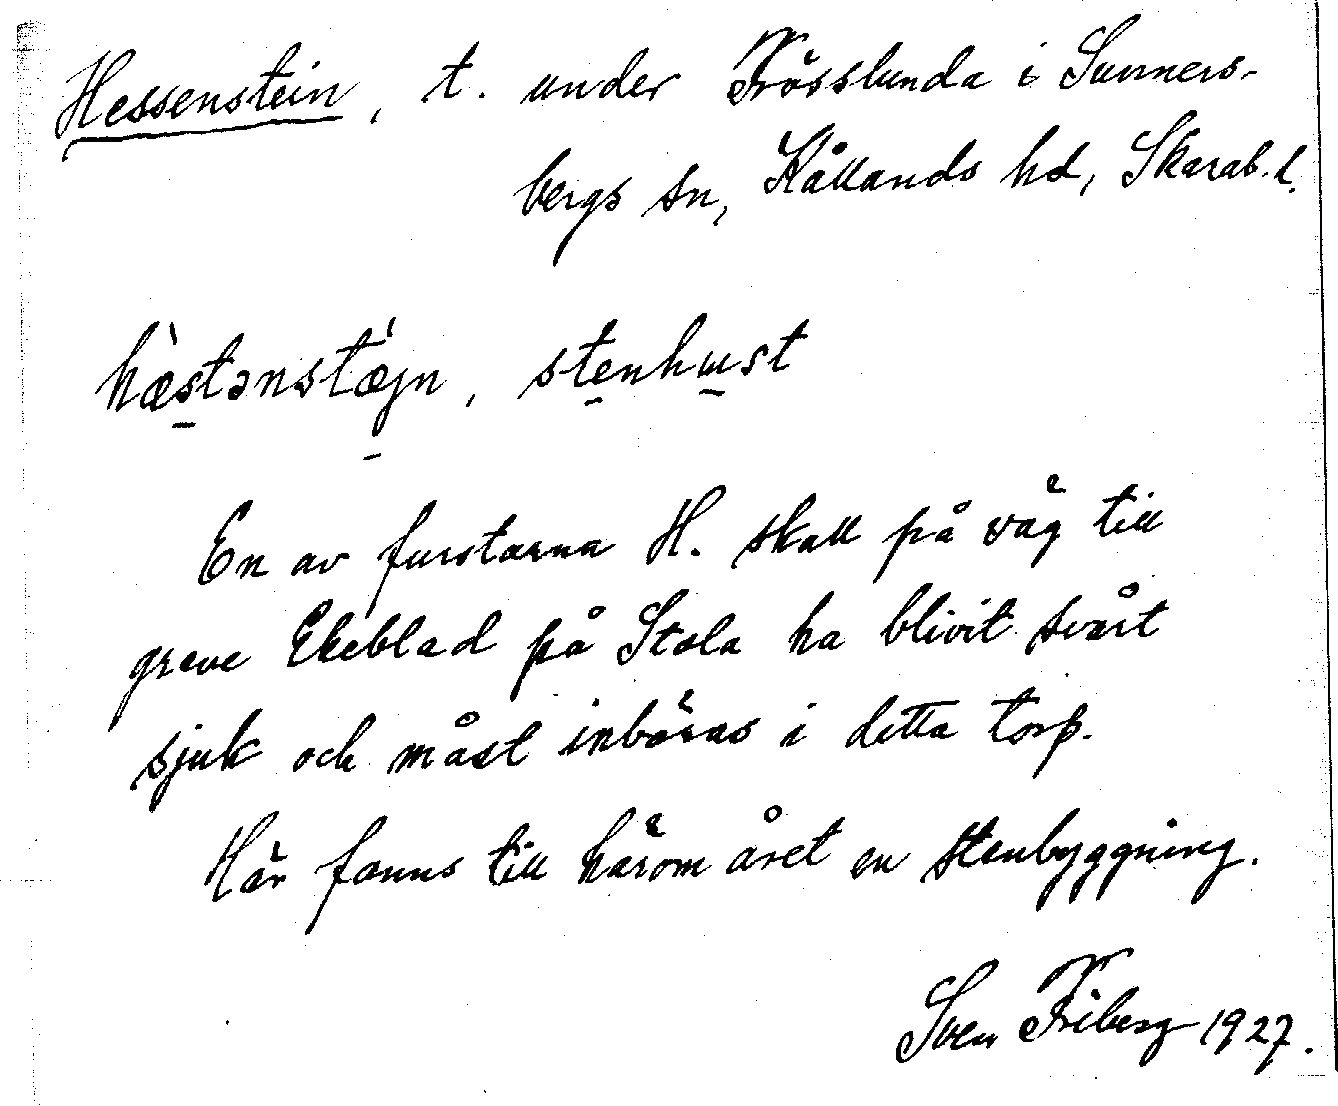 Hessenstein, t. under Frösslunda i Sunners-
bergs sn, Kållands hd, Skarab. l.
hæ̀stənstǽjn, stenhust
En av furstarna H. skall på väg till
greve Ekeblad på Stola ha blivit svårt
sjuk och måst inbäras i detta torp.
Här fanns till härom året en stenbyggning.
Sven Friberg 1927.